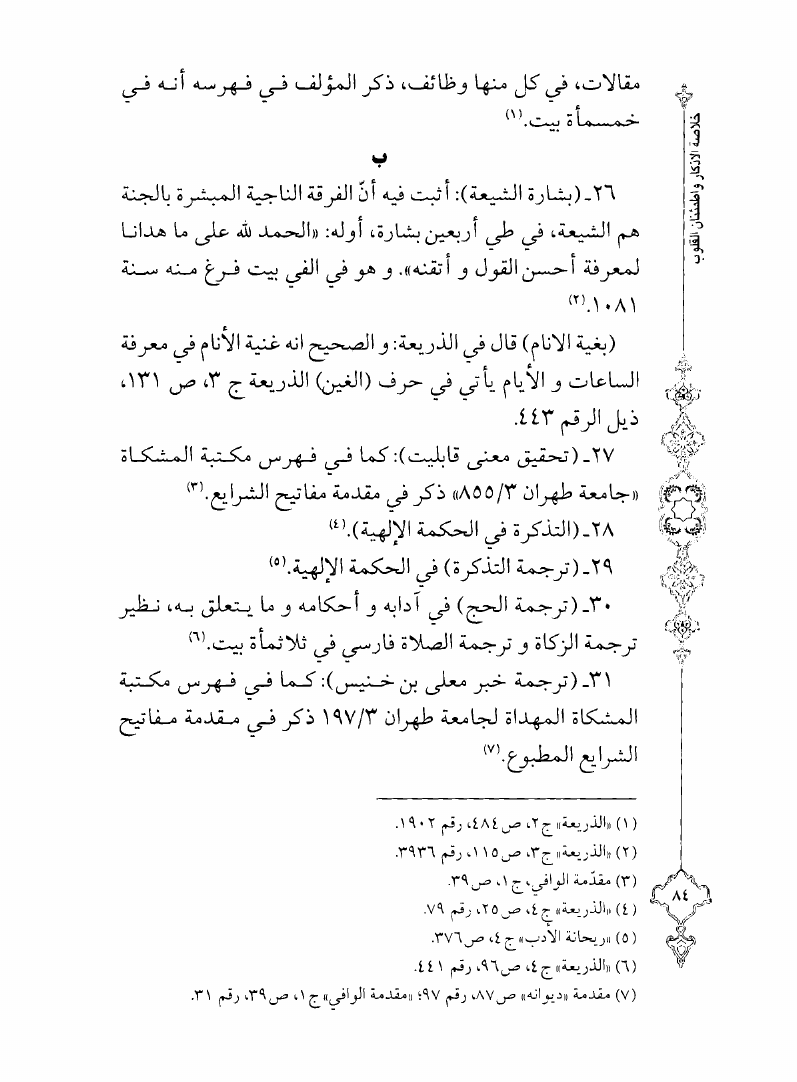 مقالات، في كل منها وظائف، ذكر المؤلف في فهرسه أنه في
خمسمأة بيت.(١)
ب
٢٦ـ (بشارة الشيعة): أثبت فيه أنّ الفرقة الناجية المبشرة بالجنة
هم الشيعة، في طي أربعين بشارة، أوله: «الحمد لله على ما هدانا
لمعرفة أحسن القول و أتقنه». و هو في الفي بيت فرغ منه سنة
١٠٨١.(٢)
(بغية الانام) قال في الذريعة: و الصحيح انه غنية الأنام في معرفة
الساعات و الأيام يأتي في حرف (الغين) الذريعة ج ٣، ص ١٣١،
ذيل الرقم ٤٤٣.
٢٧ـ (تحقيق معنى قابليت): كما في فهرس مكتبة المشكاة
«جامعة طهران ٨٥٥/٣» ذكر في مقدمة مفاتيح الشرايع.(٣)
٢٨ـ (التذكرة في الحكمة الإلهية).(٤)
٢٩ـ (ترجمة التذكرة) في الحكمة الإلهية.(٥)
٣٠ـ (ترجمة الحج) في آدابه و أحكامه و ما يتعلق به، نظير
ترجمة الزكاة و ترجمة الصلاة فارسي في ثلاثمأة بيت.(٦)
٣١ـ (ترجمة خبر معلى بن خنيس): كما في فهرس مكتبة
المشكاة المهداة لجامعة طهران ١٩٧/٣ ذكر في مقدمة مفاتيح
الشرايع المطبوع.(٧)
(١) «الذريعة» ج٢، ص٤٨٤، رقم ١٩٠٢.
(٢) «الذريعة» ج٣، ص١١٥، رقم ٣٩٣٦.
(٣) مقدّمة الوافي، ج١، ص٣٩.
(٤) «الذريعة» ج٤، ص٢٥، رقم ٧٩.
(٥) «ريحانة الأدب» ج٤، ص٣٧٦.
(٦) «الذريعة» ج٤، ص٩٦، رقم ٤٤١.
(٧) مقدمة «ديوانه» ص٨٧، رقم ٩٧؛ «مقدمة الوافي» ج١، ص٣٩، رقم ٣١.
خلاصة الاذكار واطمئنان القلوب
٨٤